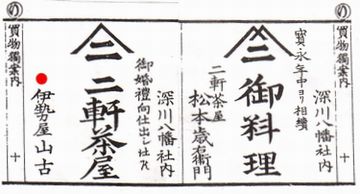 の
買物獨案内
十
深川八幡社内
寳永年中ヨリ相續
二
御料理
二軒茶屋
松本歳右衛門
の
買物獨案内
十
深川八幡社内
御婚禮向仕出し仕候
二
二軒茶屋
伊勢屋山古